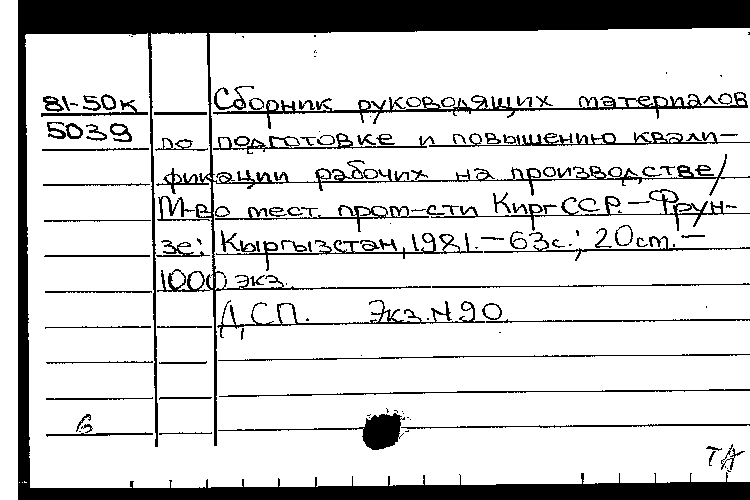 81-50к Сборник руководящих материалов
5039 по подготовке и повышению квали-
фикации рабочих на производстве/
М-во мест. пром-сти КиргССР. - Фрун-
зе: Кыргызстан, 1981. - 63с.; 20см. -
1000 экз.
ДСП. Экз.N.90
6
ТА